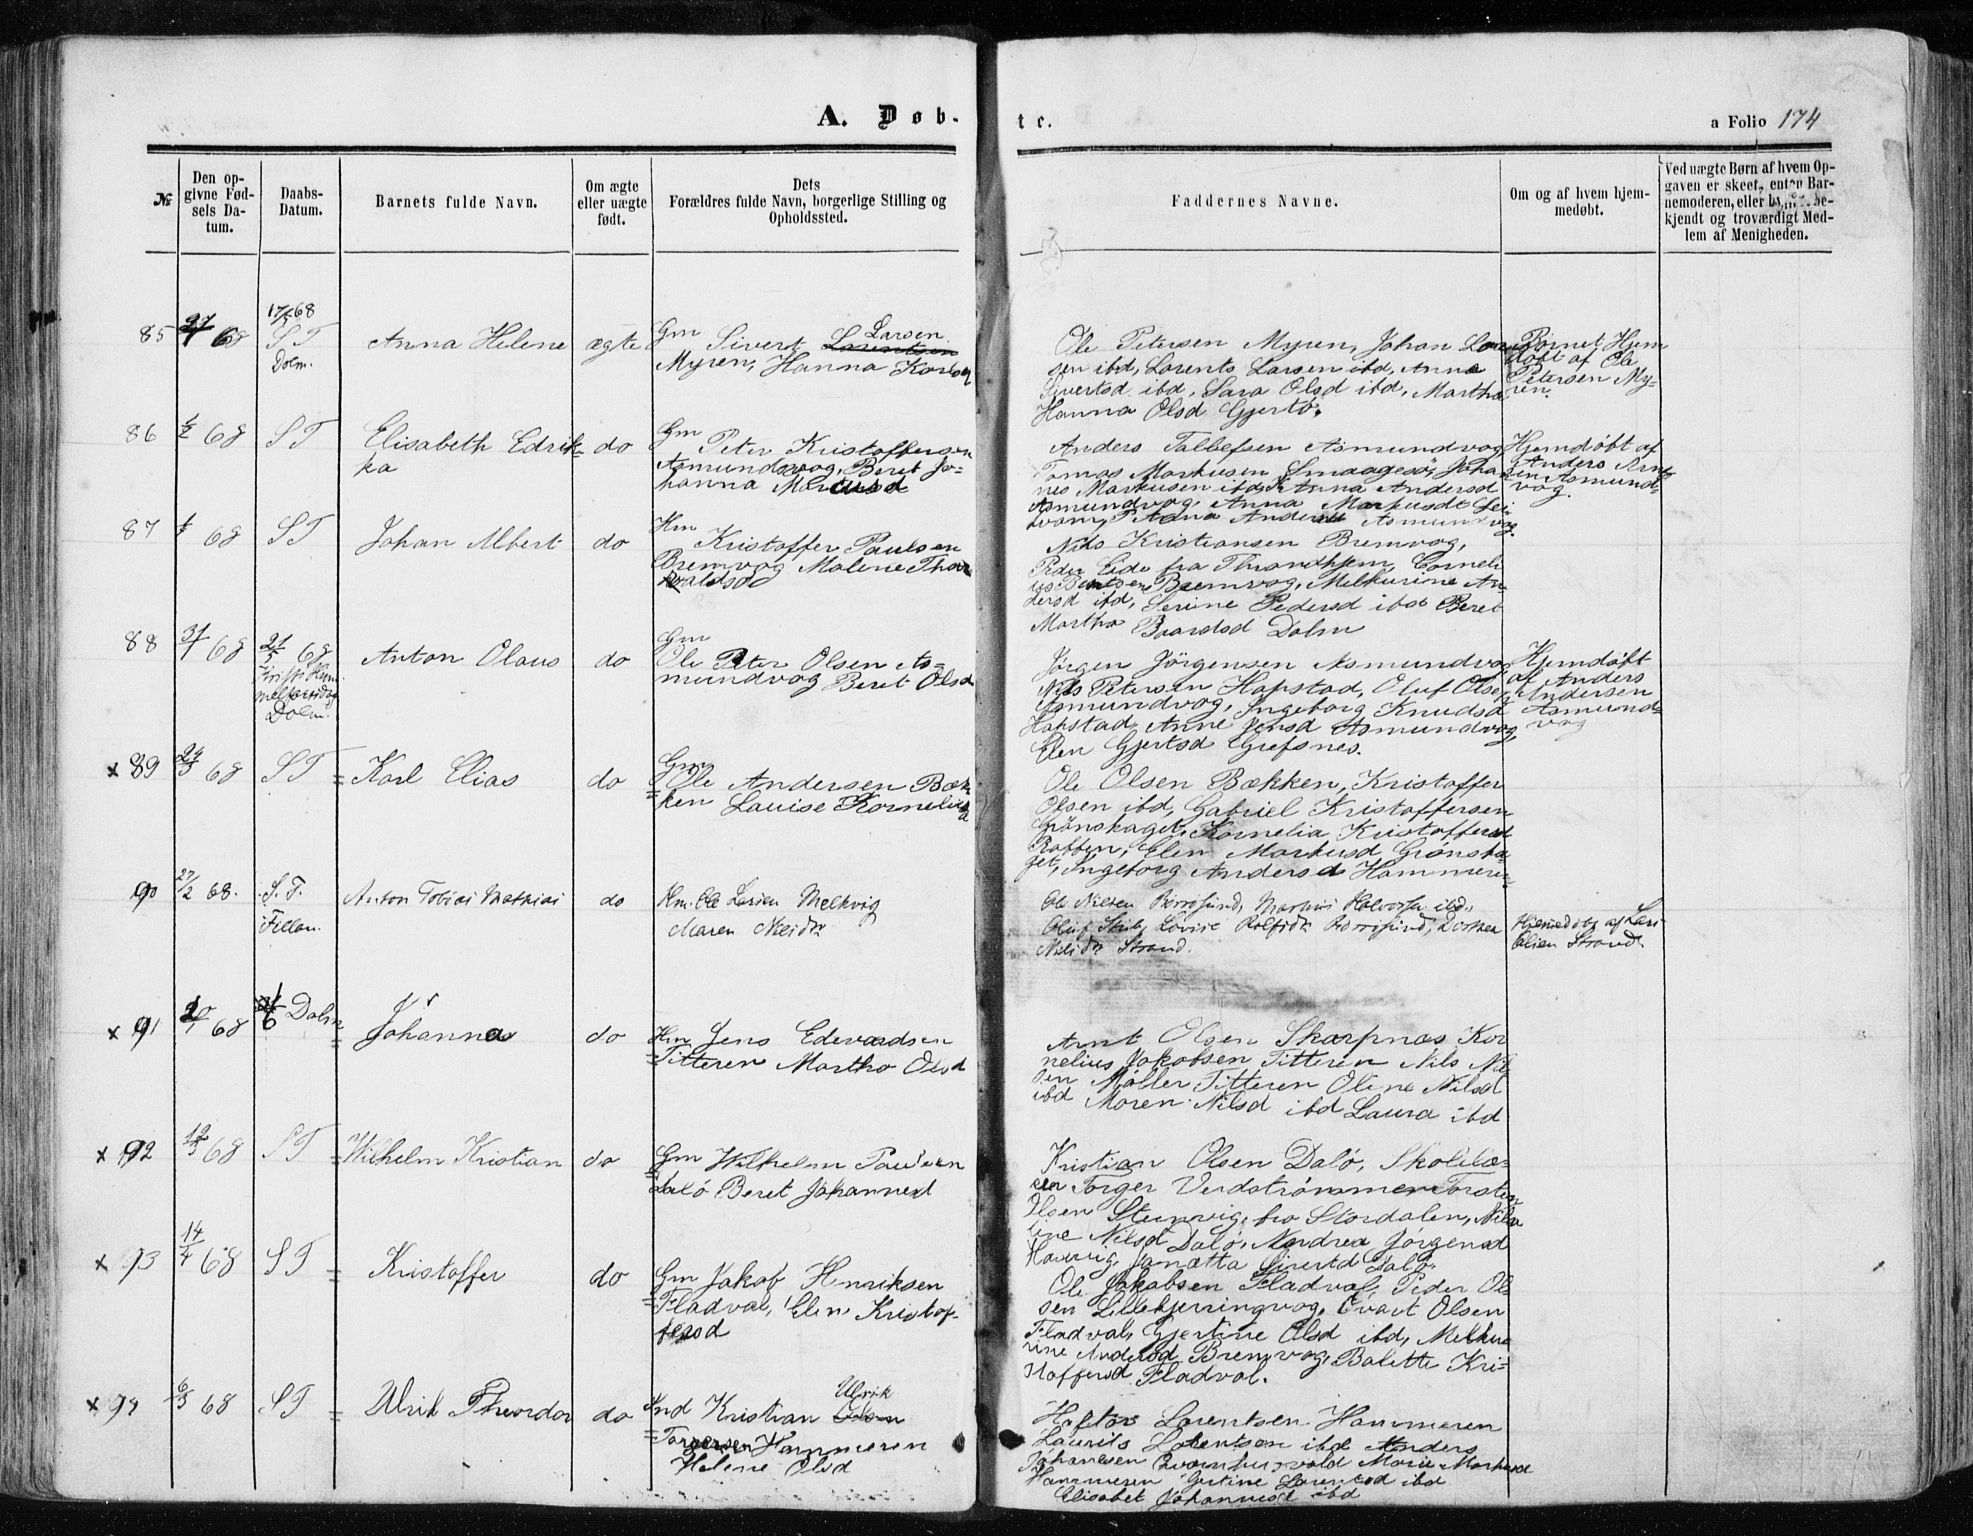 A. Døb-
te.
a Folio 174
№
Den op-
givne Fød-
sels Da-
tum.
Daabs-
Datum.
Barnets fulde Navn.
Om ægte
eller uægte
født.
Dets
Forældres fulde Navn, borgerlige Stilling og
Opholdssted.
Faddernes Navne.
Om og af hvem hjem-
medøbt.
Ved uægte Børn af hvem Op-
gaven er skeet, enten Bar-
nemoderen, eller
kjendt og troværdigt Med-
lem af Menigheden.
85
68
17/5 68
ST
Dolm.
Anna Helene
ægte
Gm Sivert Larsen
Myren, Hanna
Ole Petersen Myren, Johan
sen ibd, Lorents Larsen ibd, Anna
Sivertsd ibd, Sara Olsd ibd, Martha
Hanna Olsd Gjertø.
Barnet Hjem
døbt af Ole
Petersen My-
ren.
86
68
ST
Elisabeth Edrik-
ka
do
Gm
Peter Kristoffersen
Asmundvog, Beret Jo-
hanna
Anders Asmundvog
Tomas Markusen Smaagesø, Joha
nes Markusen ibd, Anna Andersd
Asmundvog, Anna
Anna Asmundvog.
Hjemdøbt af
Anders
Asmund-
vog.
87
68
ST
Johan Albert
do
Hm
Kristoffer Paulsen
Bremvog Malene Thor
valdsd
Nils Kristiansen Bremvog,
Peder Eide fra Throndhjem, Corneli
us Bremvog, Melkurine An
dersd ibd, Serine Pedersd ibd Beret
Martha Baardsd Dolm
88
31/1 68
21/5 68
Kristi Him
melfartsdag
Dolm.
Anton Olaus
do
Gm
Ole Peter Olsen As-
mundvog Beret Olsd
Jørgen Jørgensen Asmundvog
Nils Petersen Hapstad, Oluf Olsen
Asmundvog, Ingeborg Knudsd
Hapstad Anne Jensd Asmundvog,
Elen Gjertsd Grefsnes.
Hjemdøbt
af Anders
Andersen
Asmund-
vog
x 89
24/3 68
ST
Karl Elias
do
Gm
Ole Andersen Bæk
ken Lauise Kornelia
Ole Olsen Bækken, Kristoffer
Olsen ibd, Gabriel Kristoffersen
Grønskaget, Kornelia Kristoffersd
Rabben, Elen Markusd Grønska
get, Ingeborg Andersd Hammeren
90
27/2 68.
S.T.
Fillan.
Anton Tobias Mathias
do
Hm. Ole Larsen Melkvig
Maren
Ole Nilsen Borrøsund, Markus Halvorsen ibd,
Oluf Lovise Rolfsdr Borrøsund, Dorthea
Nilsdr Strand.
Hjemedøbt af Lars
Olsen Strand.
x 91
68
Dolm
Johannes
do
Hm Jens Edevardsen
Titteren Martha Olsd
Arnt Olsen Skarpnas Kor
nelius Jakobsen Titteren Nils Nil
sen Møller Titteren Oline Nilsd
ibd Moren Nilsd ibd Laura ibd
x 92
12/3 68
ST
Wilhelm Kristian
do
Gm Wilhelm Paulsen
Dalø Beret Johannesd
Kristian Olsen Dalø, Skolelæ-
rer Torger Verdstrømmen Torsten
Olsen Steinvig, fra Stordalen,
line Nilsd Dalø, Andrea Jørgensd
Havrig, Janetta Sivertsd Dalø.
x 93
14/4 68
ST
Kristoffer
do
Gm Jakob Henriksen
Fladval, Elen Kristof-
fersd
Ole Jakobsen Fladval, Peder Ol
sen Lillekjerringvog, Evart Olsen
Fladval, Gjertine Olsd ibd, Melku
rine Andersd Bremvog, Balette Kri-
stoffersd Fladval.
x 94
6/3 68
ST
Ulrik Theordor
do
Ind Kristian Ulrik
Torgersen Hammeren
Helene Olsd
Hektor Lorentsen Hammeren
Laurits Lorentsen ibd Anders
Johansen Marie Markusd
Hammeren Gjertine Lorentsd ibd
Elisabet Johannesd ibd